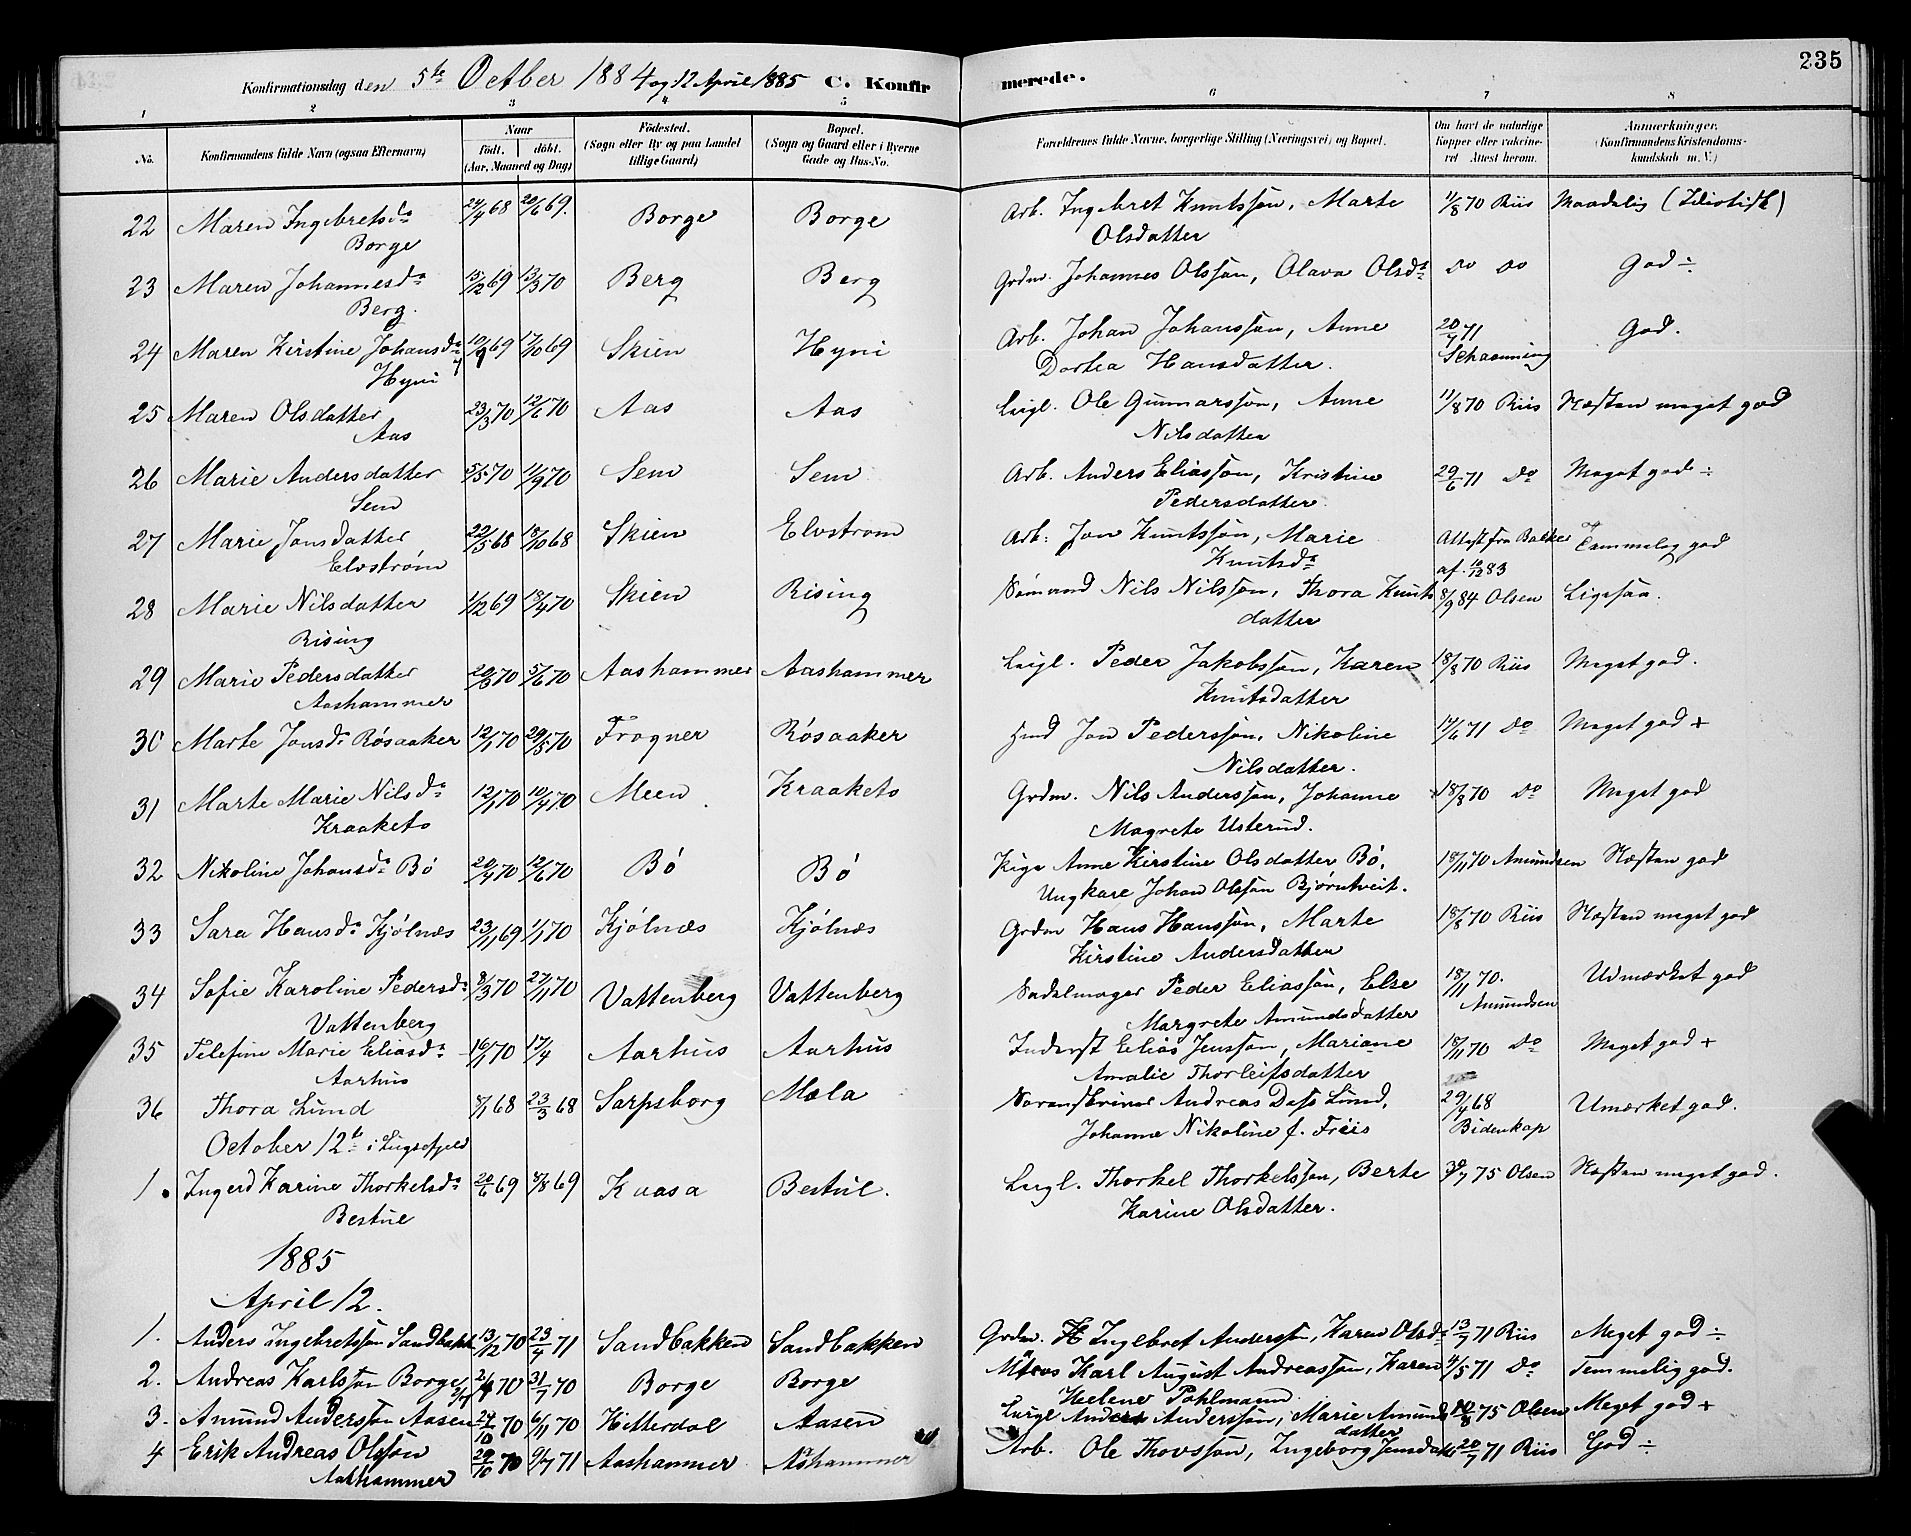 235
Konfirmationsdag den 5te October 1884 og 12 April 1885 C. Konfirmerede.
1 2 3 4 5 6 7 8
No. Konfirmandens fulde Navn (ogsaa Efternavn) Naar født. døbt. (Aar, Maaned og Dag) Fødested. (Sogn eller By og paa Landet tillige Gaard) Bopæl. (Sogn og Gaard eller i Byerne Gade og Hus-No. Forældrenes fulde Navne, borgerlige Stilling (Næringsvei) og Bopæl. Om havt de naturlige Kopper eller vakcineret Attest herom. Anmærkninger. (Konfirmandens Kristendomskundskab m. V.)
22 Maren Ingebretsdr 24/4 68 20/6 69. Borge Borge Arb. Ingebret Knutssøn, Marte 11/8 70 Riis Maadelig (Idiotisk)
Borge Olsdatter
23 Maren Johannesdr 15/12 69 13/3 70 Berg Berg Grdm. Johannes Olssøn, Olava Olsdr do do God ÷
Berg.
24 Maren Kirstine Johansdr 10/9 69 17/10 69 Skien Hyni Arb. Johan Johanssøn, Anne 20/7 71 God.
Hyni Dortea Hansdatter. Schanning
25 Maren Olsdatter 23/3 70 12/6 70 Aas Aas Leigl. Ole Gunnarssøn, Anne 11/8 70 Riis Næsten meget god
Aas Nilsdatter
26 Marie Andersdatter 5/5 70 11/9 70 Sem Sem Arb. Anders Eliassøn, Kristine 29/6 71 Do Meget god ÷
Sem Pedersdatter.
27 Marie Jonsdatter 22/5 68 18/10 68 Skien Elvstrom Arb: Jon Knutssøn, Marie Attest fra Bakke Temmelig god
Elvstrøm Knutsdr af 10/12 83
28 Marie Nilsdatter 1/12 69 18/4 70 Skien Rising Sømand Nils Nilssøn, Thora Knuts 8/9 84 Olsen Ligesaa.
Rising datter
29 Marie Pedersdatter 20/3 70 5/6 70 Aashammer Aashammer Leigl. Peder Jakobssøn, Karen 18/8 70 Riis Meget god.
Aashammer Knutsdatter
30 Marte Jonsdr Røsaaker 12/1 70 29/5 70 Frogner Røsaaker Hmd Jon Pederssøn, Nikoline 17/6 71 Do Meget god +
Nilsdatter.
31 Marte Marie Nilsdr 12/1 70 10/4 70 Meen Kraaketo Grdm. Nils Anderssøn, Johanne 18/8 70 Do Meget god
Kraaketo Magrete Usterud.
32 Nikoline Johansdr Bø 20/4 70 12/6 70 Bø Bø Pige Anne Kirstine Olsdatter Bø, 18/11 70 Amundsen Næsten god
Ungkare Johan Olssøn Bjørntveit.
33 Sara Hansdr Kjølnæs 23/11 69 1/1 70 Kjølnæs Kjølnæs Grdm Hans Hanssøn, Marte 18/8 70 Riis Næsten meget god
Kirstine Andersdatter
34 Sofie Karoline Pedersdr 8/3 70 27/11 70 Vattenberg Vattenberg Sadelmager Peder Eliassøn, Else 18/11 70. Udmærket god
Vattenberg Margrete Amundsdatter Amundsen
35 Telefine Marie Eliasdr 16/1 70 17/4 Aarhus Aarhus Inderst Elias Jenssøn, Mariane 18/11 70 Do Meget god +
Aarhus Amalie Thorleifsdatter
36 Thora Lund 8/1 68 23/3 68 Sarpsborg Mæla Sorenskriver Andreas Dass Lund, 29/4 68 Umærket god.
October 12te i Luksefjeld Johanne Nikoline f. Friis Bidenkap
1. Ingerd Karine Thorkelsdr 20/6 69 8/8 69 Kaasa Bestul. Leigl. Thorkel Thorkelssøn, Berte 30/7 75 Olsen Næsten meget god.
Bestul Karine Olsdatter.
1885
April 12.
1. Anders Ingebretssøn Sandbakk 13/12 70 23/4 71 Sandbakken Sandbakken Grdm. Ingebret Anderssn, Karen Olsdr 13/7 71 Riis Meget god ÷
2. Andreas Karlssøn Borge 2/4 70 31/7 70 Borge Borge Karl August Andreassøn, Karen 4/5 71 Do Temmelig god.
Helene Pohlmann
3. Amund Anderssøn Aasen 29/10 70 6/11 70 Hitterdal Aasen Leigl Anders Anderssøn, Marie Amunds 10/8 75 Olsen Meget god +
datter
4 Erik Andreas Olssøn 29/10 70 9/7 71 Aashammer Aashammer Arb. Ole Thovssøn, Ingeborg Jensdatt 20/7 71 Riis God ÷
Aashammer